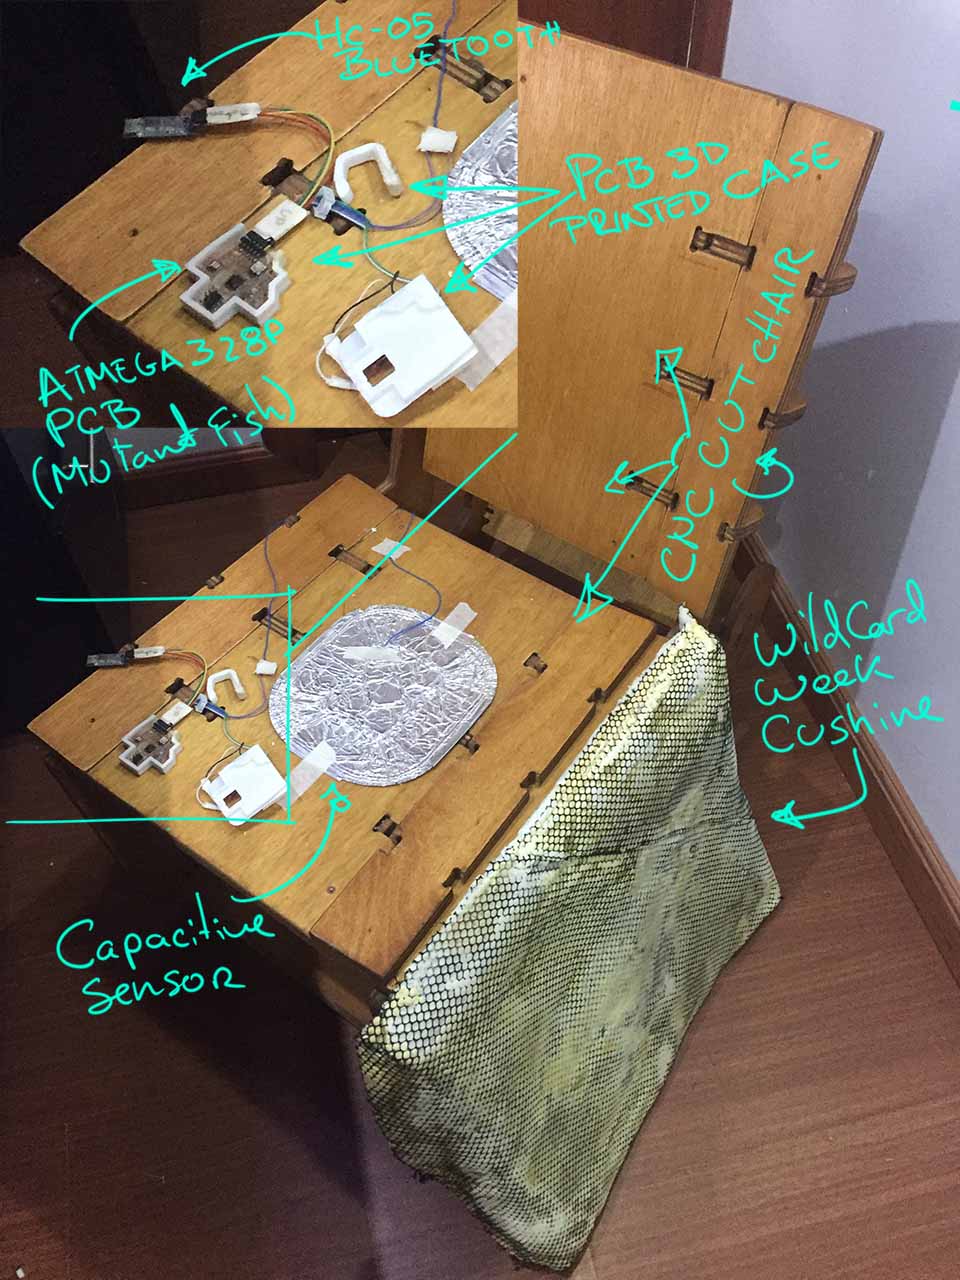 Hc-05
BLUETOOTH
PCB 3D
PRINTED CASE
ATMEGA328P
PCB
(Mutant Fish)
CNC CUT CHAIR
WildCard
Week
Cushine
Capacitive
Sensor